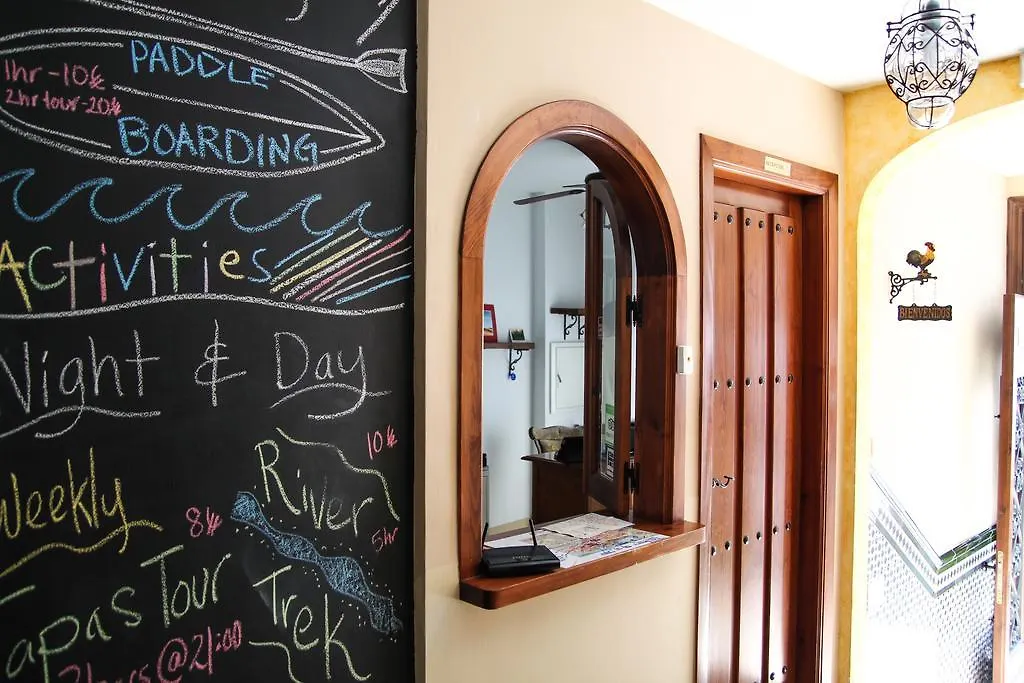 PADDLE
1hr - 10€
2hr tour - 20€
BOARDING
Activities
Night & Day
Weekly
8€
Tapas Tour
2hrs @ 21:00
10€
River
5hr
Trek
BIENVENIDOS